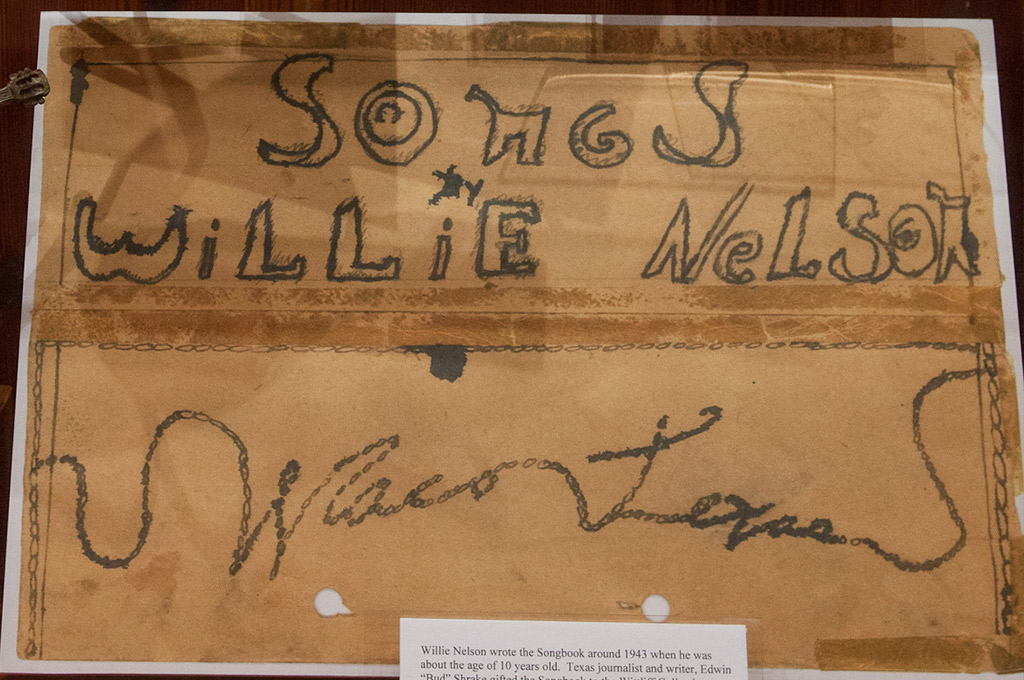 SONGS
BY
WiLLiE NeLSON
Waco Texas
Willie Nelson wrote the Songbook around 1943 when he was
about the age of 10 years old.  Texas journalist and writer, Edwin
“Bud” Shrake gifted the Songbook to the Wittliff Collections